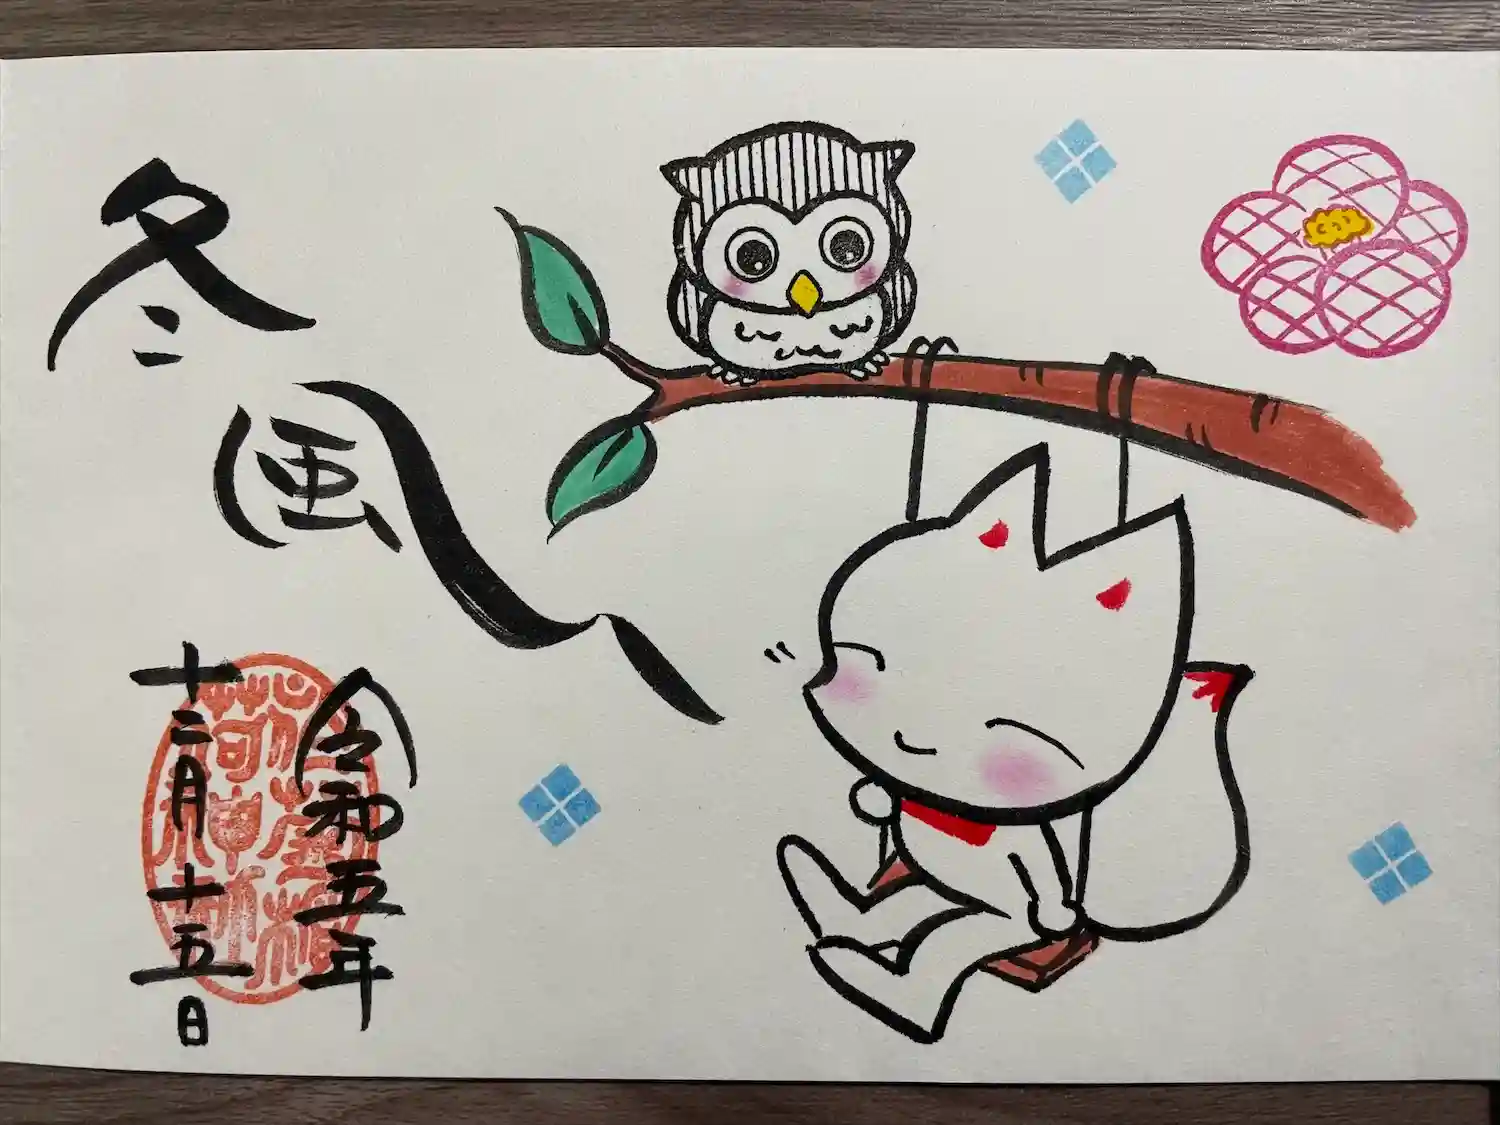 冬
風
令和五年
十二月十五日